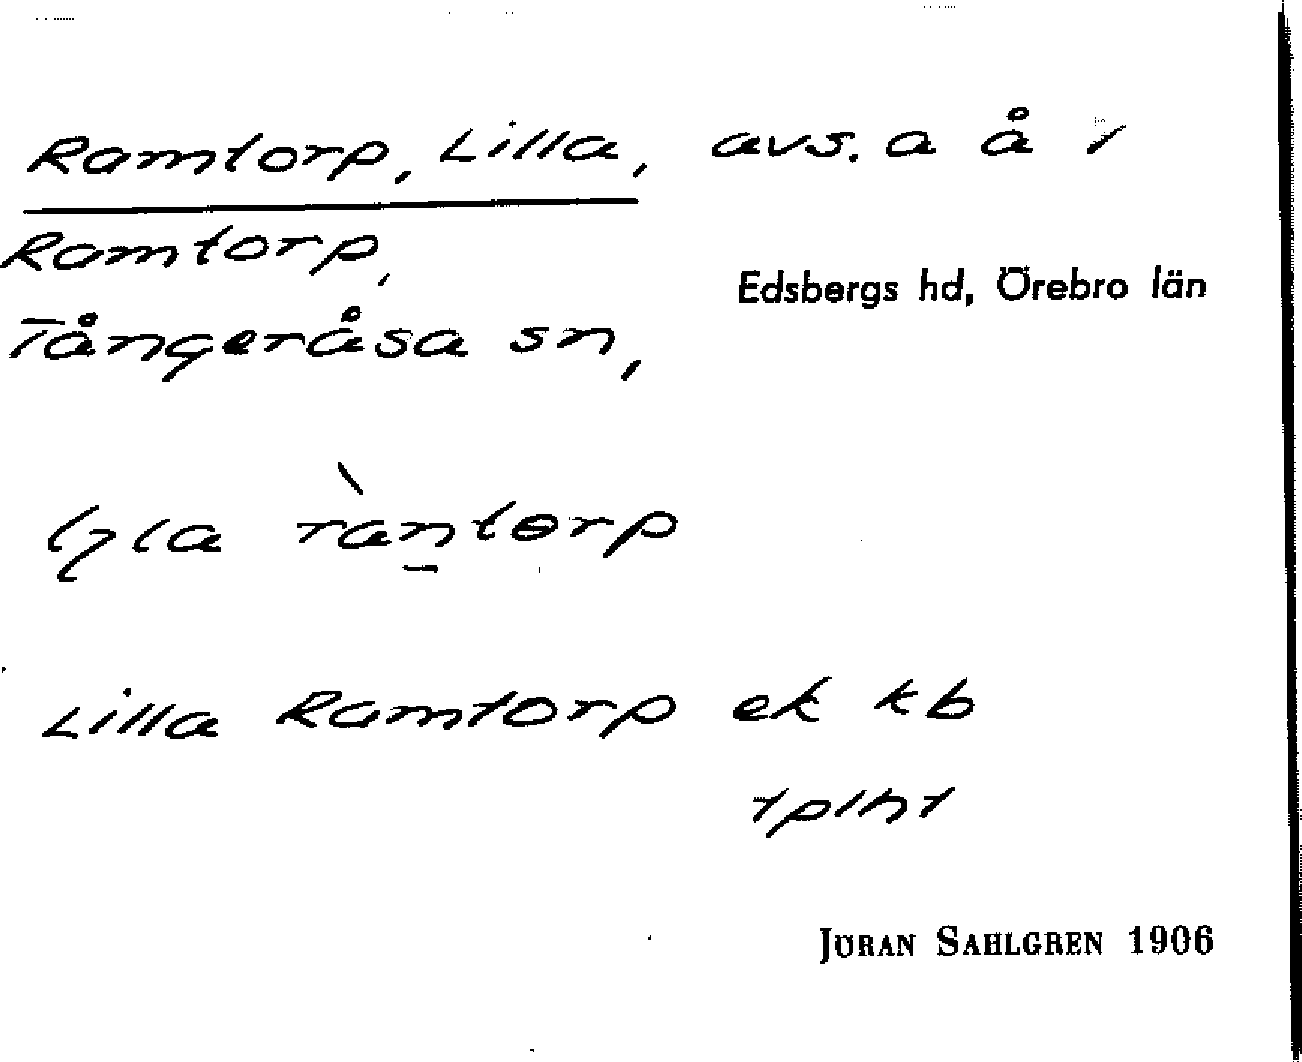 Ramtorp, Lilla, avs. a å i
Ramtorp,
Edsbergs hd, Örebro län
Tångeråsa sn,
rantorp
Lilla Ramtorp ek kb
JÖRAN SAHLGREN 1906